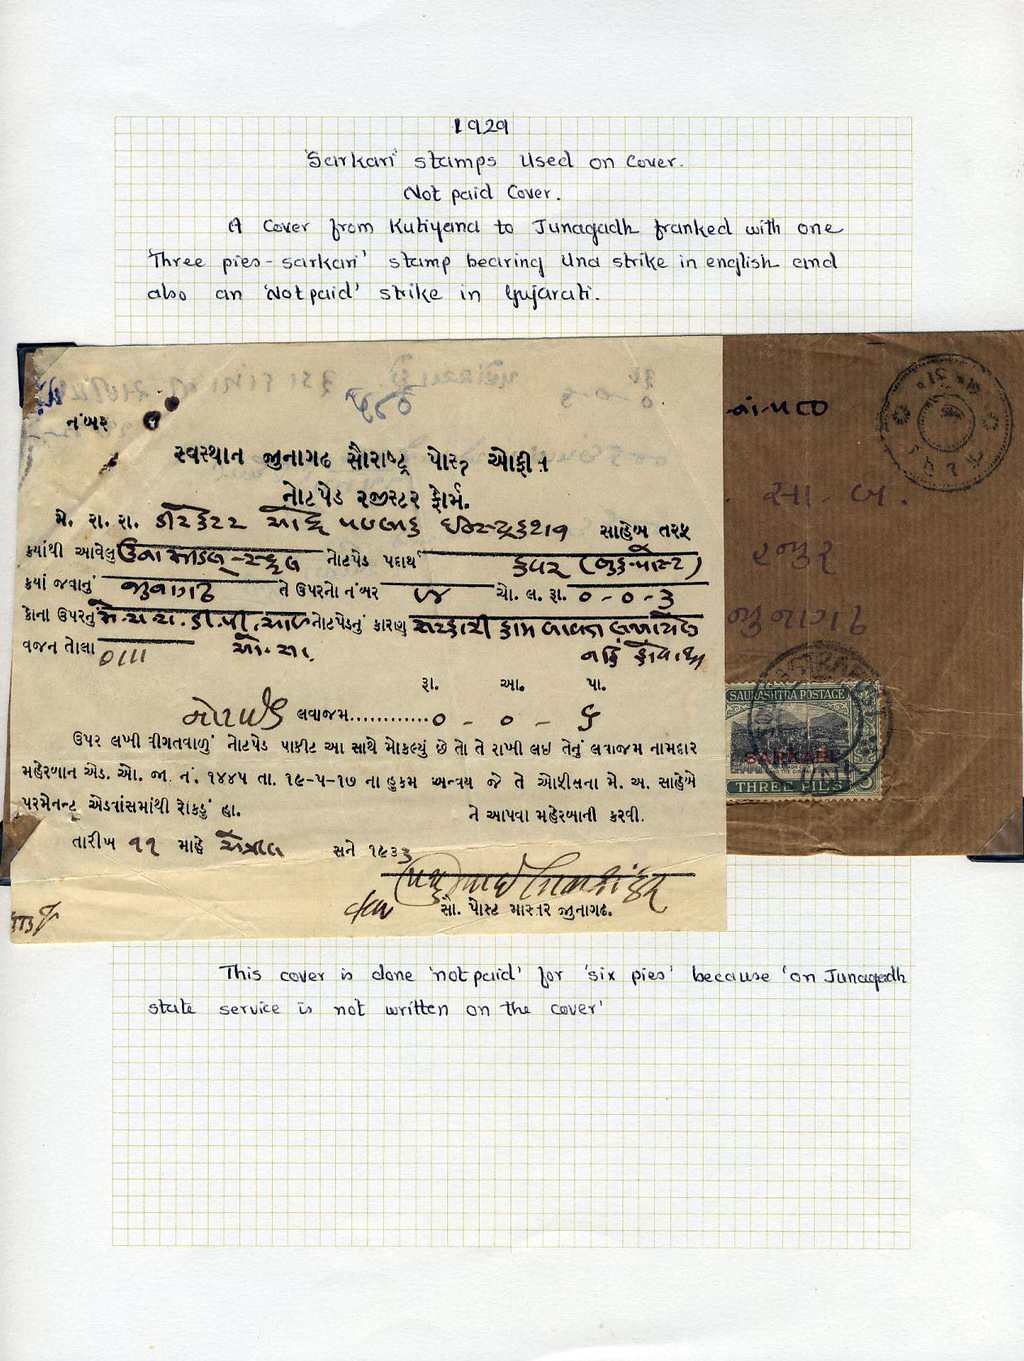 1929
'Sarkari' stamps used on cover.
Not paid Cover.
A Cover from Kutiyana to Junagadh franked with one
'Three pies - sarkari' stamp bearing Una strike in english and
also an 'Not paid' strike in Gujarati.
નંબર
સ્વસ્થાન જુનાગઢ સૌરાષ્ટ્ર પોસ્ટ ઓફીસ
નોટપેડ રજીસ્ટર ફોર્મ.
મે. રા. રા. ડીરેક્ટર ઓફ પબ્લીક ઈન્સ્ટ્રક્શન સાહેબ તરફ
ક્યાંથી આવેલું ઉના મીડલ-સ્કુલ નોટપેડ પદાર્થ કવર (બુક-પોસ્ટ)
ક્યાં જવાનું જુનાગઢ તે ઉપરનો નંબર ચો. લ. રૂા. ૦-૦-૩
કોના ઉપરનું મે. રા. રા. ડી. પી. આઈ નોટપેડનું કારણ સરકારી કામ બાબત લખાયેલ
વજન તોલા ૦૧૧૧ નહિ હોવાથી
રૂા. આ. પા.
લવાજમ............૦ - ૦ - ૬
ઉપર લખી વીગતવાળું નોટપેડ પાકીટ આ સાથે મોકલ્યું છે તો તે રાખી લઇ તેનું લવાજમ નામદાર
મહેરબાન એડ. ઓ. જા. નં. ૧૪૪૫ તા. ૧૯-૫-૧૭ ના હુકમ અન્વય જે તે ઓફીસના મે. અ. સાહેબે
પરમેનન્ટ એડવાંસમાંથી રોકડું હા. ને આપવા મહેરબાની કરવી.
તારીખ ૧૧ માહે એપ્રીલ સને ૧૯૩૩
સૌ. પોસ્ટ માસ્તર જુનાગઢ.
સા બ.
હજુર
જુનાગઢ
SAURASHTRA POSTAGE
SARKARI
THREE PIES
This cover is done 'not paid' for 'six pies' because 'on Junagadh
state service is not written on the cover'